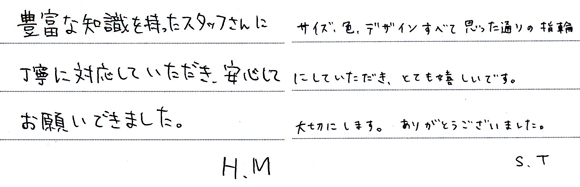 豊富な知識を持ったスタッフさんに
丁寧に対応していただき、安心して
お願いできました。
H.M
サイズ、色、デザインすべて思った通りの指輪
にしていただき、とても嬉しいです。
大切にします。 ありがとうございました。
S.T